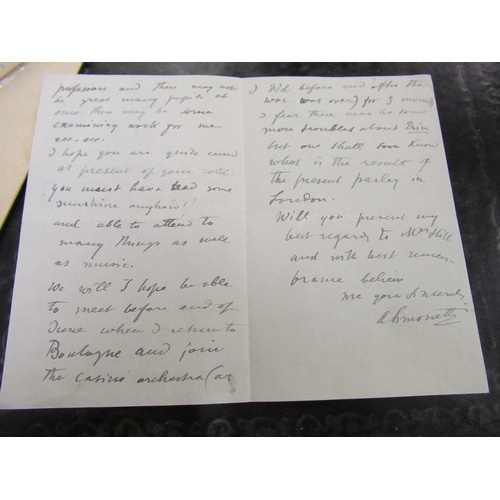 professors and there may not
be great many pupils at
once there may be some
examining work for me
etc. etc.
I hope you are quite cured
at present of your cold.
(you must have had some
sunshine anyhow!!
and able to attend to
many things as well
as music.
We will I hope be able
to meet before end of
June when I return to
Boulogne and join
the casino orchestra (as
I did before and after the
war was over) for 3 months
I fear there may be some
more troubles about
but one shall soon know
what is the result of
the present parley in
London.
Will you present my
best regards to Mrs Hill
and with best remem-
brance believe
me yours sincerely
A Simonetti